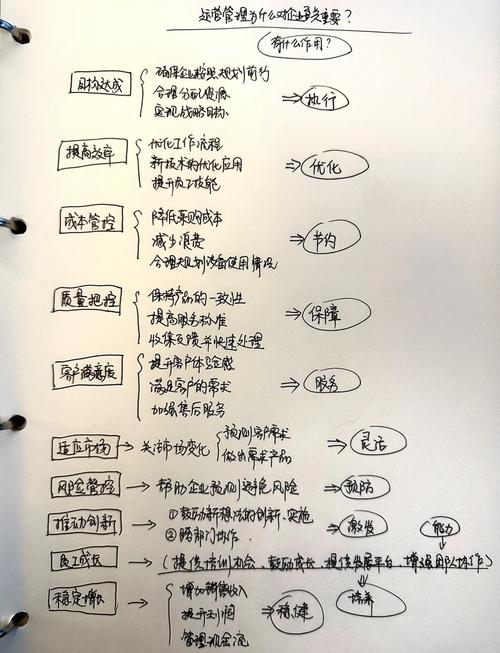 运营管理为什么对企业至关重要?
有什么作用?
目标达成
确保企业按照规划前行
合理分配资源
实现战略目标
⇒ 执行
提高效率
优化工作流程
新技术的优化应用
提升员工技能
⇒ 优化
成本管控
降低采购成本
减少浪费
合理规划设备使用情况
⇒ 节约
质量把控
保持产品的一致性
提高服务标准
收集反馈并快速处理
⇒ 保障
客户满意度
提升客户体验感
满足客户的需求
加强售后服务
⇒ 服务
适应市场 → 关注市场变化
预测客户需求
做出需求产品
⇒ 灵活
风险管控 → 帮助企业预测避免风险 ⇒ 预防
推动创新 →
①鼓励新想法的创新、实施
②跨部门协作.
⇒ 激发
能力
员工成长 → (提供培训机会、鼓励成长、提供发展平台、增强团队协作)
培养
稳定增长 →
增加销售收入
提升利润
管理现金流
⇒ 稳健